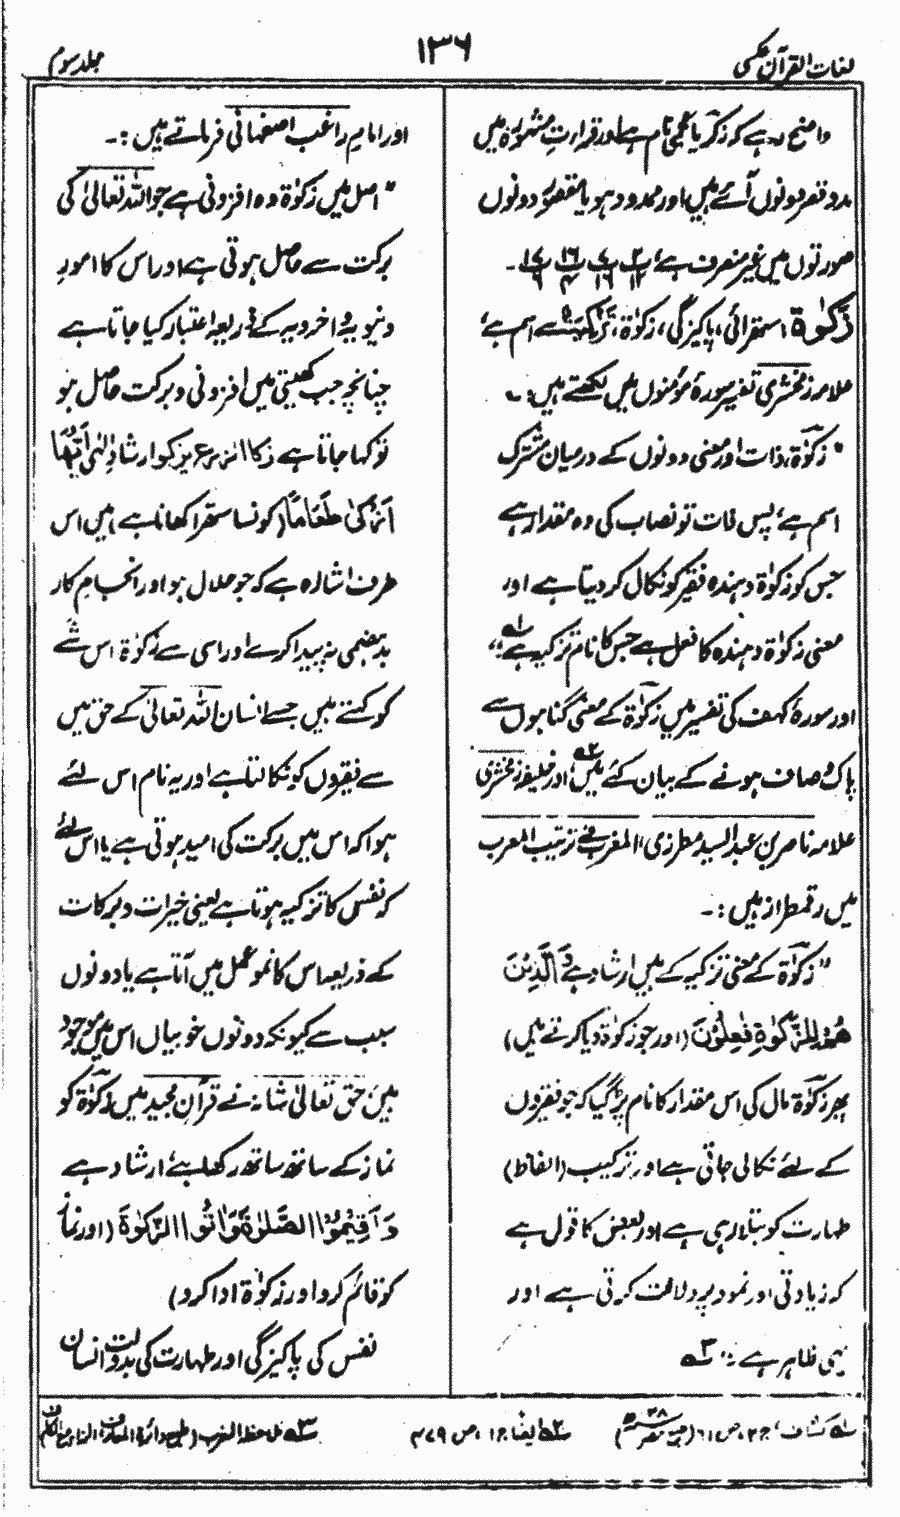 لغات القرآن عکسی
۱۳۶
جلد سوم
واضح رہے کہ زکریا عجمی نام ہے اور قراءتِ مشہورہ میں
مد و قصر دونوں آئے ہیں اور ممدود ہو یا مقصور دونوں
صورتوں میں غیر منصرف ہے،
زَکٰوۃ: ستھرائی، پاکیزگی، زکوٰۃ، سے اسم ہے،
علامہ زمخشری تفسیر سورۂ مؤمنوں میں لکھتے ہیں:۔
"زکوٰۃ، ذات اور معنی دونوں کے درمیان مشترک
اسم ہے، پس ذات تو نصاب کی وہ مقدار ہے
جس کو زکوٰۃ دہندہ فقیر کو نکال کر دیتا ہے اور
معنی زکوٰۃ دہندہ کا فعل ہے جس کا نام تزکیہ ہے"
اور سورۂ کہف کی تفسیر میں زکوٰۃ کے معنی گناہوں سے
پاک و صاف ہونے کے بیان کئے ہیں، اور خلیفۂ زمخشری
علامہ ناصر بن عبد السید مطرزی، المغرب فی ترتیب المعرب
میں رقمطراز ہیں:۔
"زکوٰۃ کے معنی تزکیہ کے ہیں ارشاد ہے وَالَّذِیْنَ
ھُمْ لِلزَّکٰوۃِ فٰعِلُوْنَ (اور جو زکوٰۃ دیا کرتے ہیں)
پھر زکوٰۃ مال کی اس مقدار کا نام پڑ گیا کہ جو فقیروں
کے لئے نکالی جاتی ہے اور ترکیب (الفاظ)
طہارت کو بتلا رہی ہے اور بعض کا قول ہے
کہ زیادتی اور نمو پر دلالت کرتی ہے اور
یہی ظاہر ہے"
اور امام راغب اصفہانی فرماتے ہیں:۔
"اصل میں زکوٰۃ وہ افزونی ہے جو اللہ تعالیٰ کی
برکت سے حاصل ہوتی ہے اور اس کا امورِ
دنیویہ و اخرویہ کے ذریعہ اعتبار کیا جاتا ہے
چنانچہ جب کھیتی میں افزونی و برکت حاصل ہو
تو کہا جاتا ہے زکا الزرع یزکو ارشادِ الٰہی اَیُّھَا
اَزْکٰی طَعَامًا (کونسا ستھرا کھانا ہے) میں اس
طرف اشارہ ہے کہ جو حلال ہو اور انجام کار
بدہضمی نہ پیدا کرے اور اسی سے زکوٰۃ اس شے
کو کہتے ہیں جسے انسان اللہ تعالیٰ کے حق میں
سے فقیروں کو نکالتا ہے اور یہ نام اس لئے
ہوا کہ اس میں برکت کی امید ہوتی ہے یا اس لئے
کہ نفس کا تزکیہ ہوتا ہے یعنی خیرات و برکات
کے ذریعہ اس کا نمو عمل میں آتا ہے یا دونوں
سبب سے کیونکہ دونوں خوبیاں اس میں موجود
ہیں، حق تعالیٰ شانہ نے قرآن مجید میں زکوٰۃ کو
نماز کے ساتھ ساتھ رکھا ہے، ارشاد ہے
وَاَقِیْمُوا الصَّلٰوۃَ وَاٰتُوا الزَّکٰوۃَ (اور نماز
کو قائم کرو اور زکوٰۃ ادا کرو)
نفس کی پاکیزگی اور طہارت کی بدولت انسان
لہ کشاف، ج ۲، ص ۶۱ (طبع مصر
۲ہ ایضاً ج ۱، ص ۴۷۹
۳ہ ملاحظہ المغرب (طبع دائرۃ المعارف